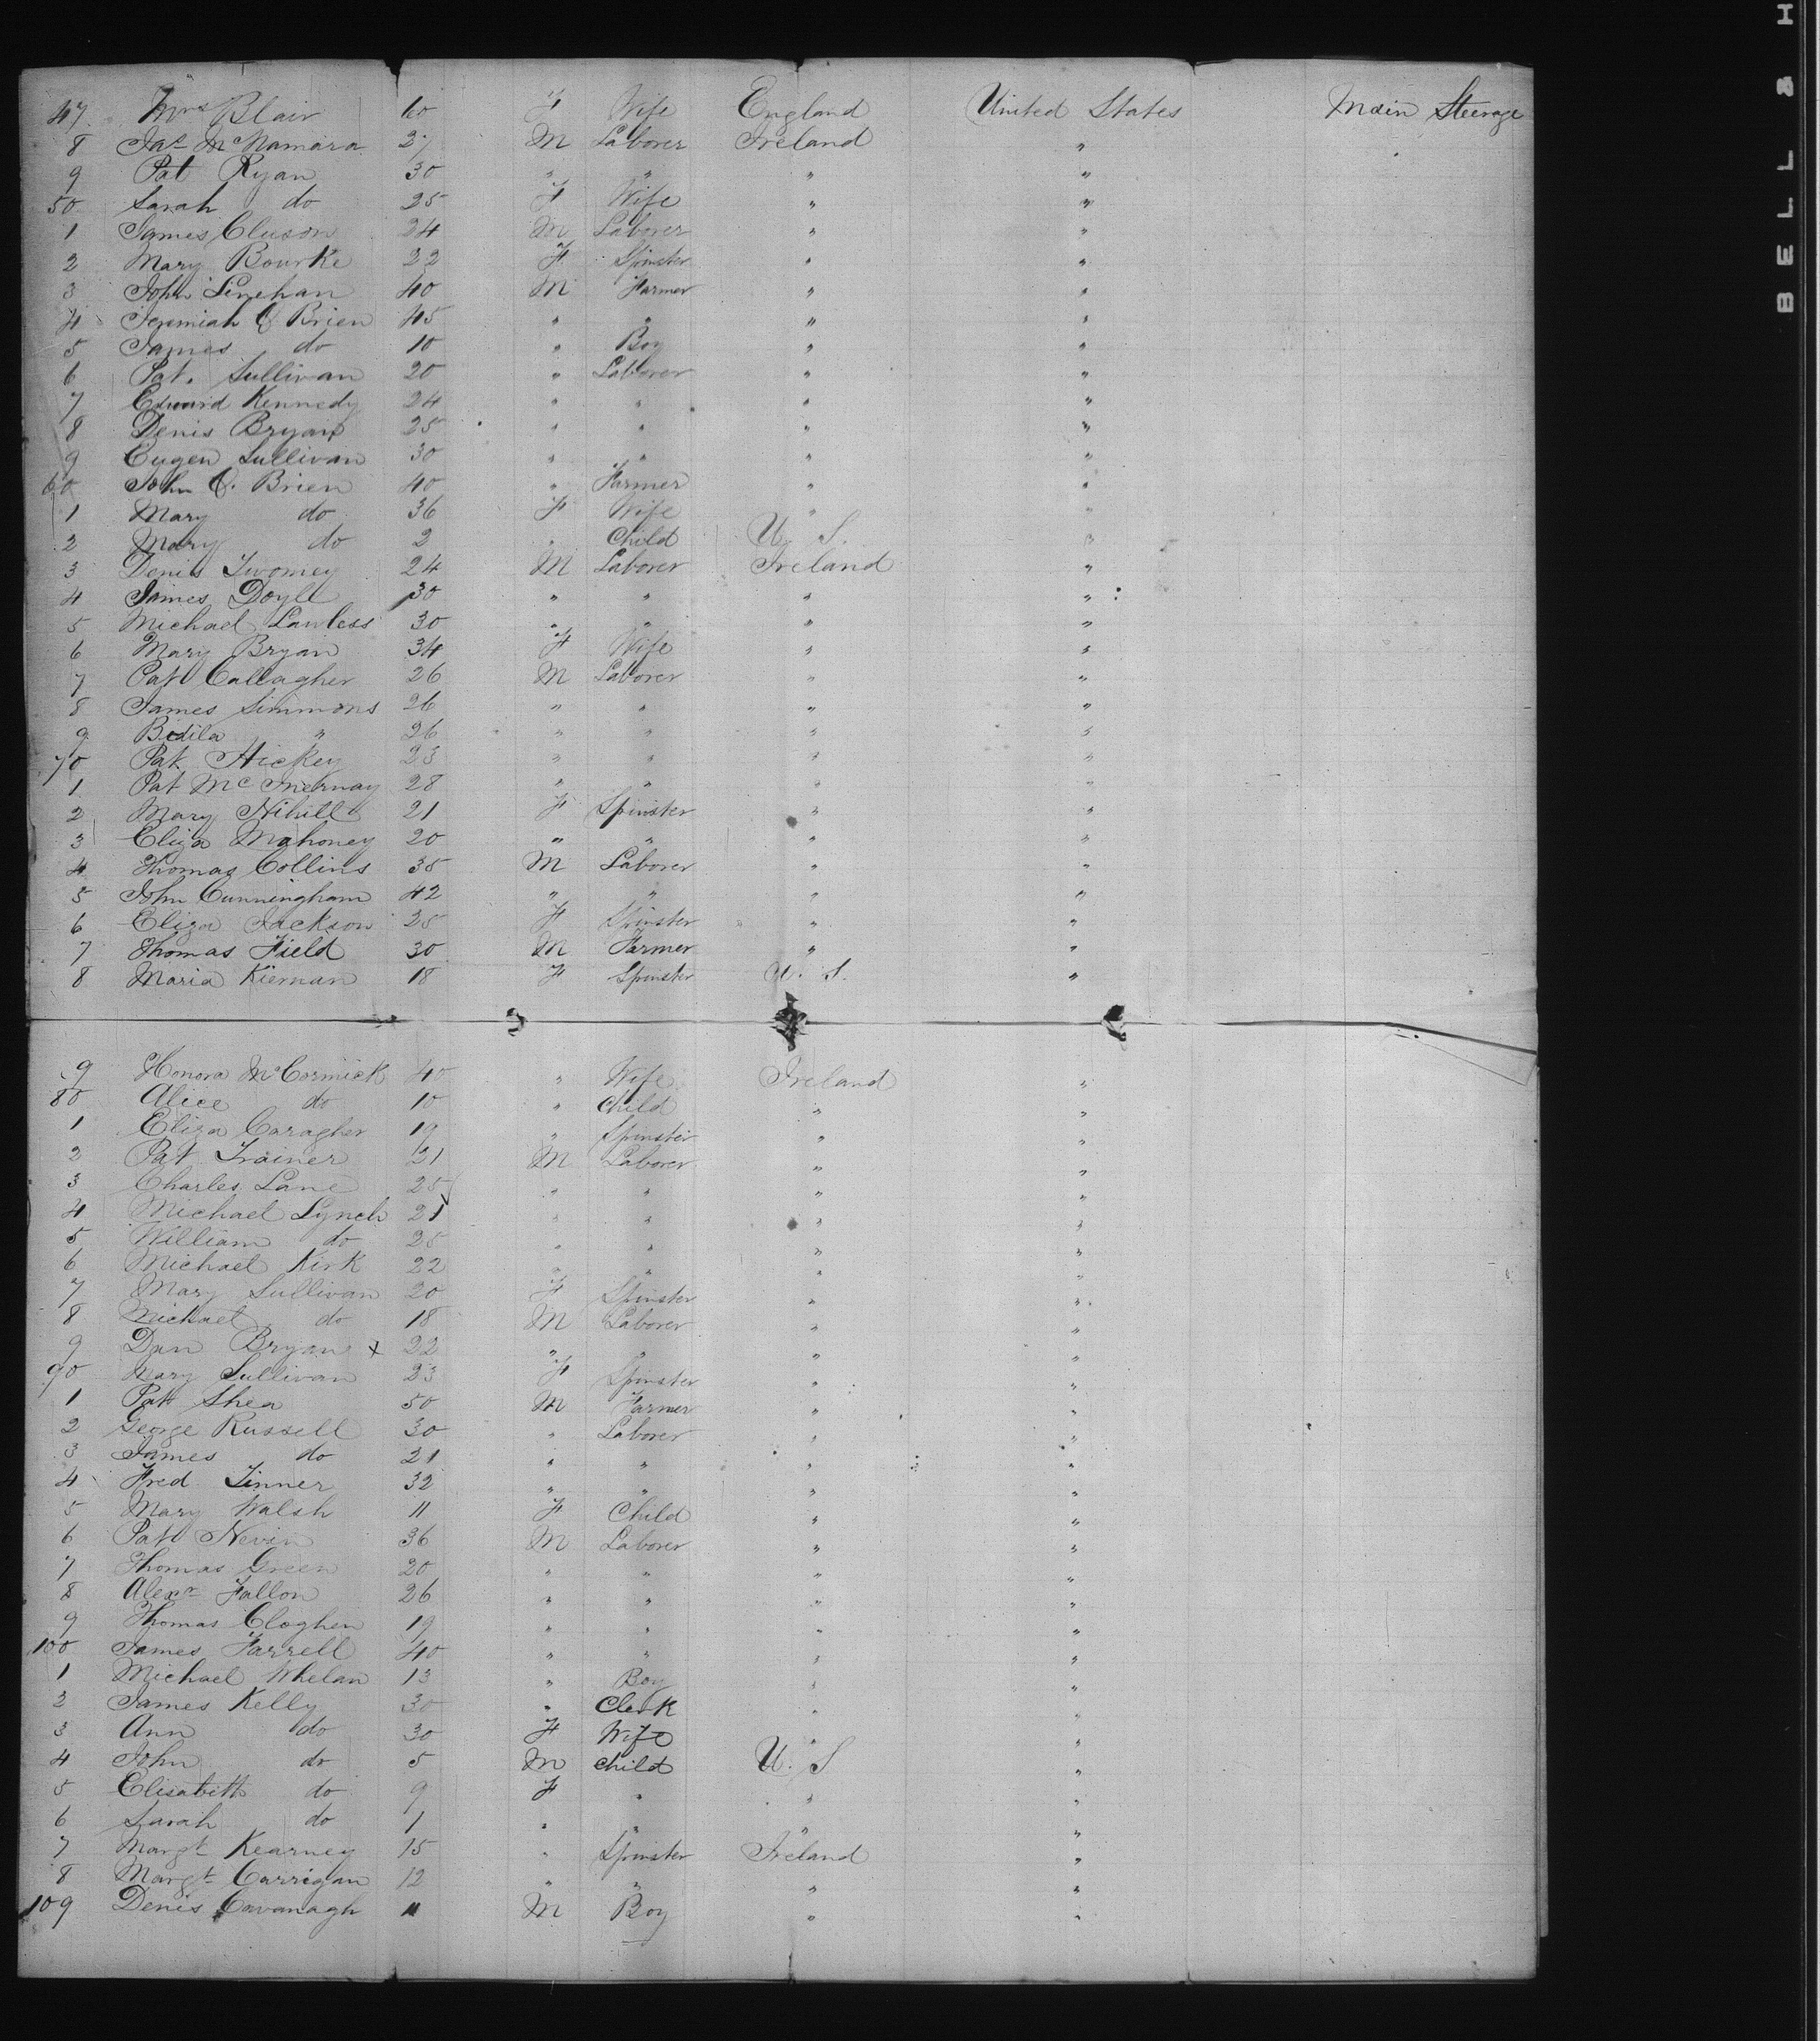 47. Mrs Blair 60 F Wife England United States Main Steerage
8 Jas McNamara 27 M Laborer Ireland "
9 Pat Ryan 30 " " " "
50 Sarah do 25 F Wife " "
1 James Cluson 24 M Laborer " "
2 Mary Bourke 22 F Spinster " "
3 John Linehan 40 M Farmer " "
4 Jeremiah O Brien 45 " " " "
5 James do 10 " Boy " "
6 Pat. Sullivan 20 " Laborer " "
7 Edward Kennedy 24 " " " "
8 Denis Bryan 25 " " " "
9 Eugen Sullivan 30 " " " "
60 John O. Brien 40 " Farmer " "
1 Mary do 36 F Wife " "
2 Mary do 2 " Child U. S. "
3 Denis Twomey 24 M Laborer Ireland "
4 James Doyll 30 " " " "
5 Michael Lawless 30 " " " "
6 Mary Bryan 34 F Wife " "
7 Pat Callagher 26 M Laborer " "
8 James Simmons 26 " " " "
9 Bidila " 26 " " " "
70 Pat Hickey 23 " " " "
1 Pat Mc Inernay 28 " " " "
2 Mary Nihill 21 F Spinster " "
3 Eliza Mahoney 20 " " " "
4 Thomas Collins 35 M Laborer " "
5 John Cunningham 42 " " " "
6 Eliza Jackson 25 F Spinster " "
7 Thomas Field 30 M Farmer " "
8 Maria Kiernan 18 F Spinster U. S. "
9 Honora McCormick 40 " Wife Ireland "
80 Alice do 10 " Child " "
1 Eliza Caragher 19 " Spinster " "
2 Pat Trainer 21 M Laborer " "
3 Charles Lane 25 " " " "
4 Michael Lynch 21 " " " "
5 William do 25 " " " "
6 Michael Kirk 22 " " " "
7 Mary Sullivan 20 F Spinster " "
8 Michael do 18 M Laborer " "
9 Dan Bryan x 22 " " " "
90 Mary Sullivan 23 F Spinster " "
1 Pat Shea 50 M Farmer " "
2 George Russell 30 " Laborer " "
3 James do 21 " " " "
4 Fred Tinner 32 " " " "
5 Mary Walsh 11 F Child " "
6 Pat Nevin 36 M Laborer " "
7 Thomas Green 20 " " " "
8 Alexr Fallon 26 " " " "
9 Thomas Cloghen 19 " " " "
100 James Farrell 40 " " " "
1 Michael Whelan 13 " Boy " "
2 James Kelly 30 " Clerk " "
3 Ann do 30 F Wife " "
4 John do 5 M Child U. S "
5 Elisabith do 9 F " " "
6 Sarah do 1 " " " "
7 Margt Kearney 15 " Spinster Ireland "
8 Margt Carrigan 12 " " " "
109 Denis Cavanagh 11 M Boy " "
BELL & H